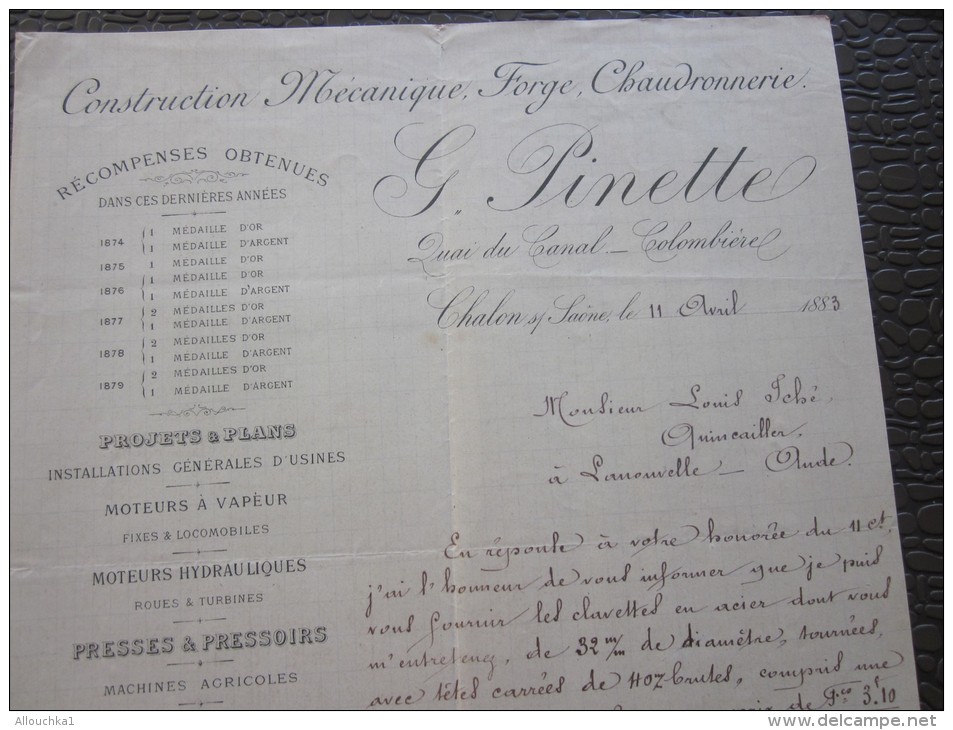 Construction Mécanique, Forge, Chaudronnerie.
G. Pinette
Quai du Canal _ Colombière
Chalon s/ Saône, le 11 Avril 1883
RÉCOMPENSES OBTENUES
DANS CES DERNIÈRES ANNÉES
1874 { 1 MÉDAILLE D'OR
1 MÉDAILLE D'ARGENT
1875 1 MÉDAILLE D'OR
1876 { 1 MÉDAILLE D'OR
1 MÉDAILLE D'ARGENT
1877 { 2 MÉDAILLES D'OR
1 MÉDAILLE D'ARGENT
1878 { 2 MÉDAILLES D'OR
1 MÉDAILLE D'ARGENT
1879 { 2 MÉDAILLES D'OR
1 MÉDAILLE D'ARGENT
PROJETS & PLANS
INSTALLATIONS GÉNÉRALES D'USINES
MOTEURS À VAPEUR
FIXES & LOCOMOBILES
MOTEURS HYDRAULIQUES
ROUES & TURBINES
PRESSES & PRESSOIRS
MACHINES AGRICOLES
Monsieur Louis Iché,
Quincailler,
à Lanouvelle _ Aude.
En réponse à votre honorée du 11 ct,
j'ai l'honneur de vous informer que je puis
vous fournir les clavettes en acier dont vous
m'entretenez, de 32 m/m de diamètre, tournées,
avec têtes carrées de 40 brutes, compris une
prix de 3f.10
Allouchka1
www.delcampe.net